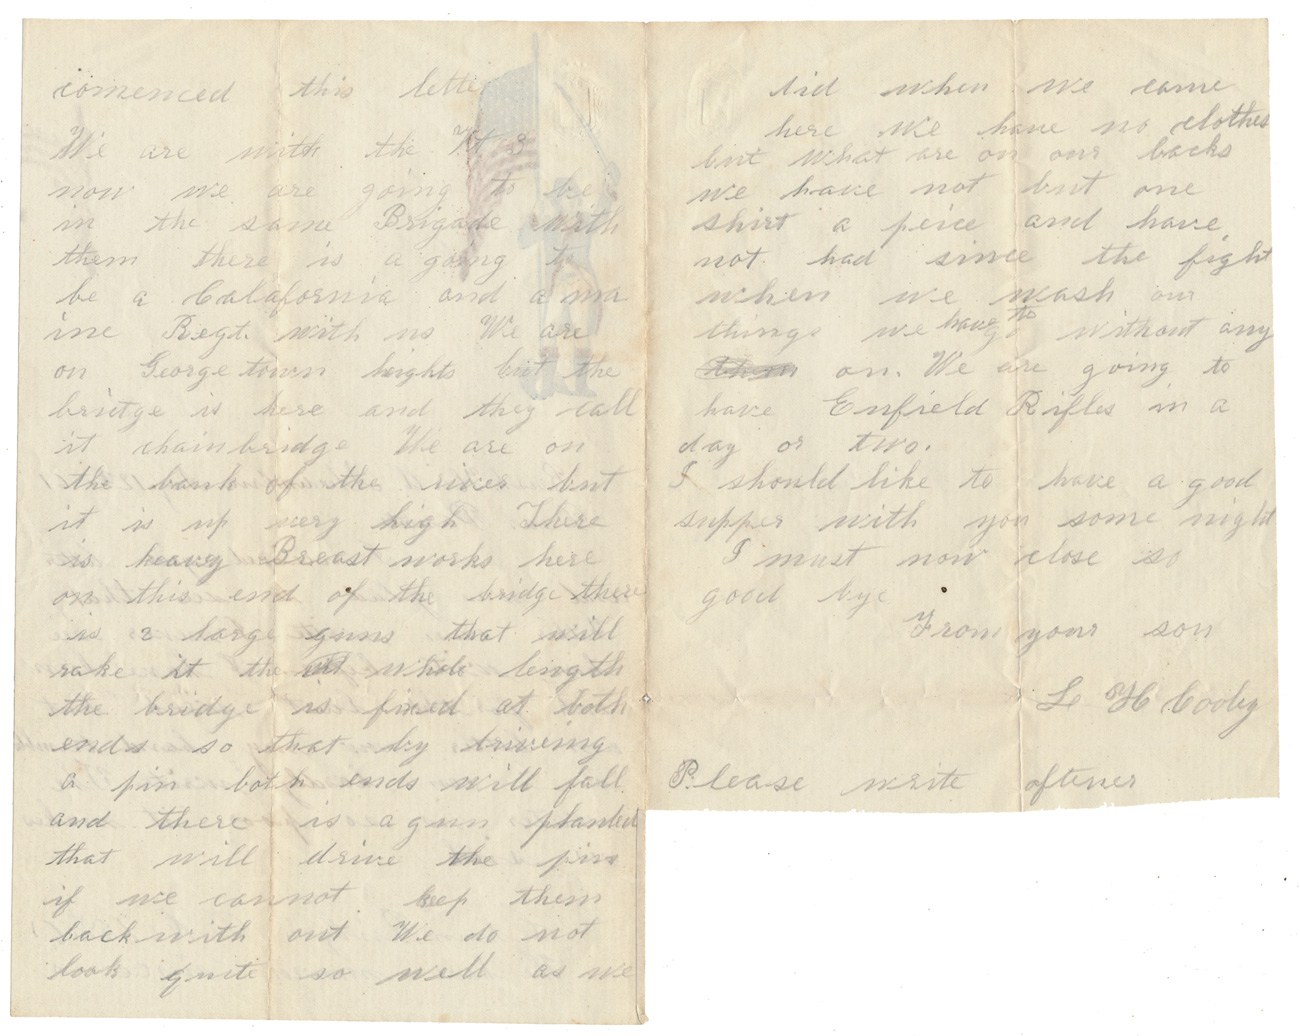 comenced this letter
We are with the Vt 3
now we are going to be
in the same Brigade with
them there is a going to
be a Calafornia and a ma
ine Regt. with us We are
on George town hights but the
bridge is here and they call
it chainbridge We are on
the bank of the river but
it is up very high There
is heavy Breast works here
on this end of the bridge there
is 2 large guns that will
rake it the whole length
the bridge is fixed at both
ends so that by driveing
a pin both ends will fall
and there is a gun planted
that will drive the pin
if we cannot keep them
back with out We do not
look quite so well as we
did when we came
here We have no clothes
but what are on our backs
we have not but one
shirt a peice and have
not had since the fight
when we wash our
things we have to go without any
on. We are going to
have Enfield Rifles in a
day or two.
I should like to have a good
supper with you some night
I must now close so
good bye
From your son
L H Cooby
Please write oftener